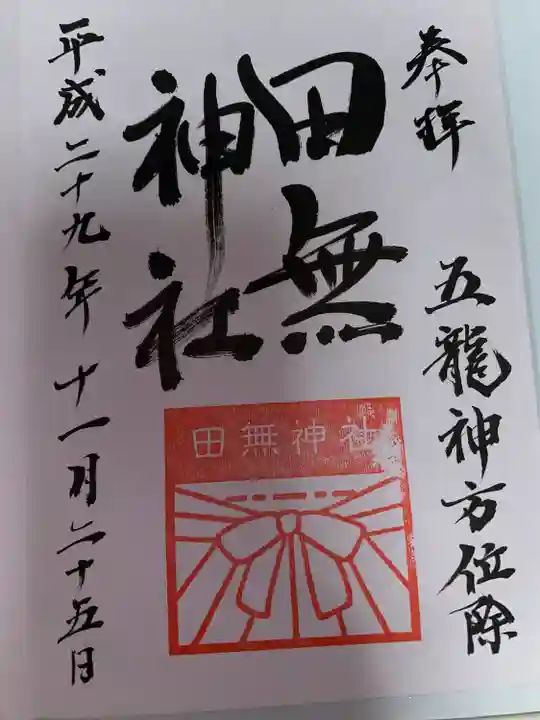 奉拝
五龍神方位除
田無
神社
田無神社
平成二十九年十一月二十五日